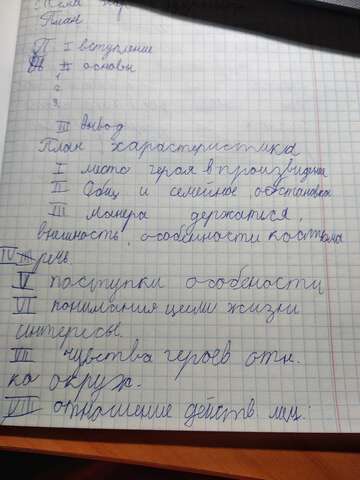 Тема
План
I вступление
II основы
1
2
3
III вывод
План характеристика
I место героя в произведене
II Общ и семейное обстановка
III Манера держаться,
внешность, особенности костюма
IV речь.
V поступки особености
VI понимания цели жизни
интересы.
VII чувства героев отн.
ко окруж.
VIII отношение действ лиц.